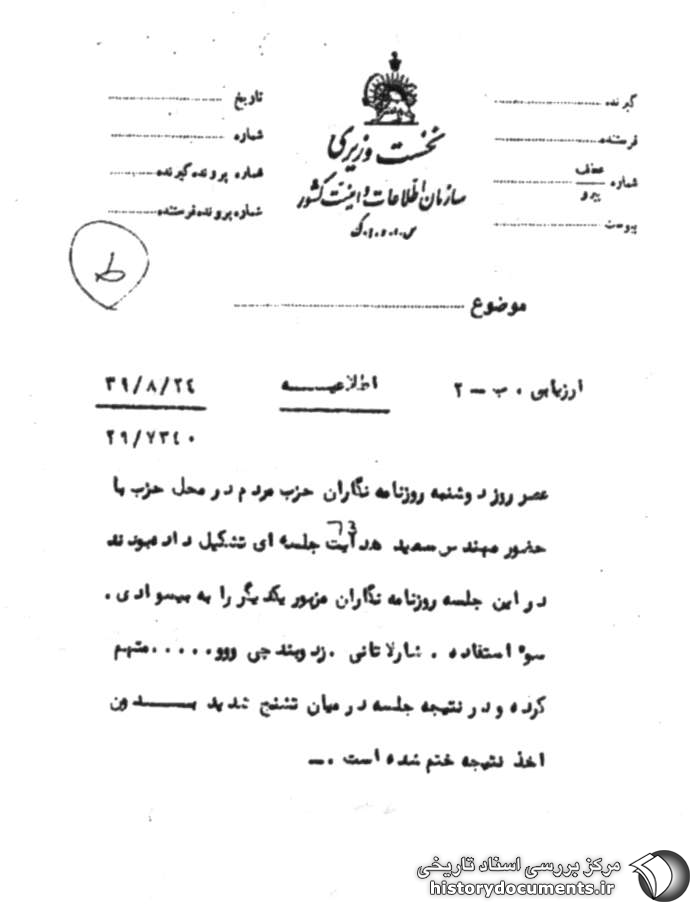 گیرنده
فرستنده
شماره عطف
پیرو
پیوست
نخست وزیری
سازمان اطلاعات و امنیت کشور
س.ا.و.ا.ک
تاریخ
شماره
شماره پرونده گیرنده
شماره پرونده فرستنده
موضوع
ارزیابی . ب - ۲
اطلاعیه
۳۹/۸/۲۴
۲۹/۷۳۴۰
عصر روز دوشنبه روزنامه نگاران حزب مردم در محل حزب با
حضور مهندس سعید هدایت جلسه ای تشکیل داده بودند
در این جلسه روزنامه نگاران مزبور یکدیگر را به بیسوادی .
سوء استفاده . شارلاتانی . زدوبندچی ووو..... متهم
کرده و در نتیجه جلسه در میان تشنج شدید بدون
اخذ نتیجه ختم شده است . ـ
مرکز بررسی اسناد تاریخی
historydocuments.ir